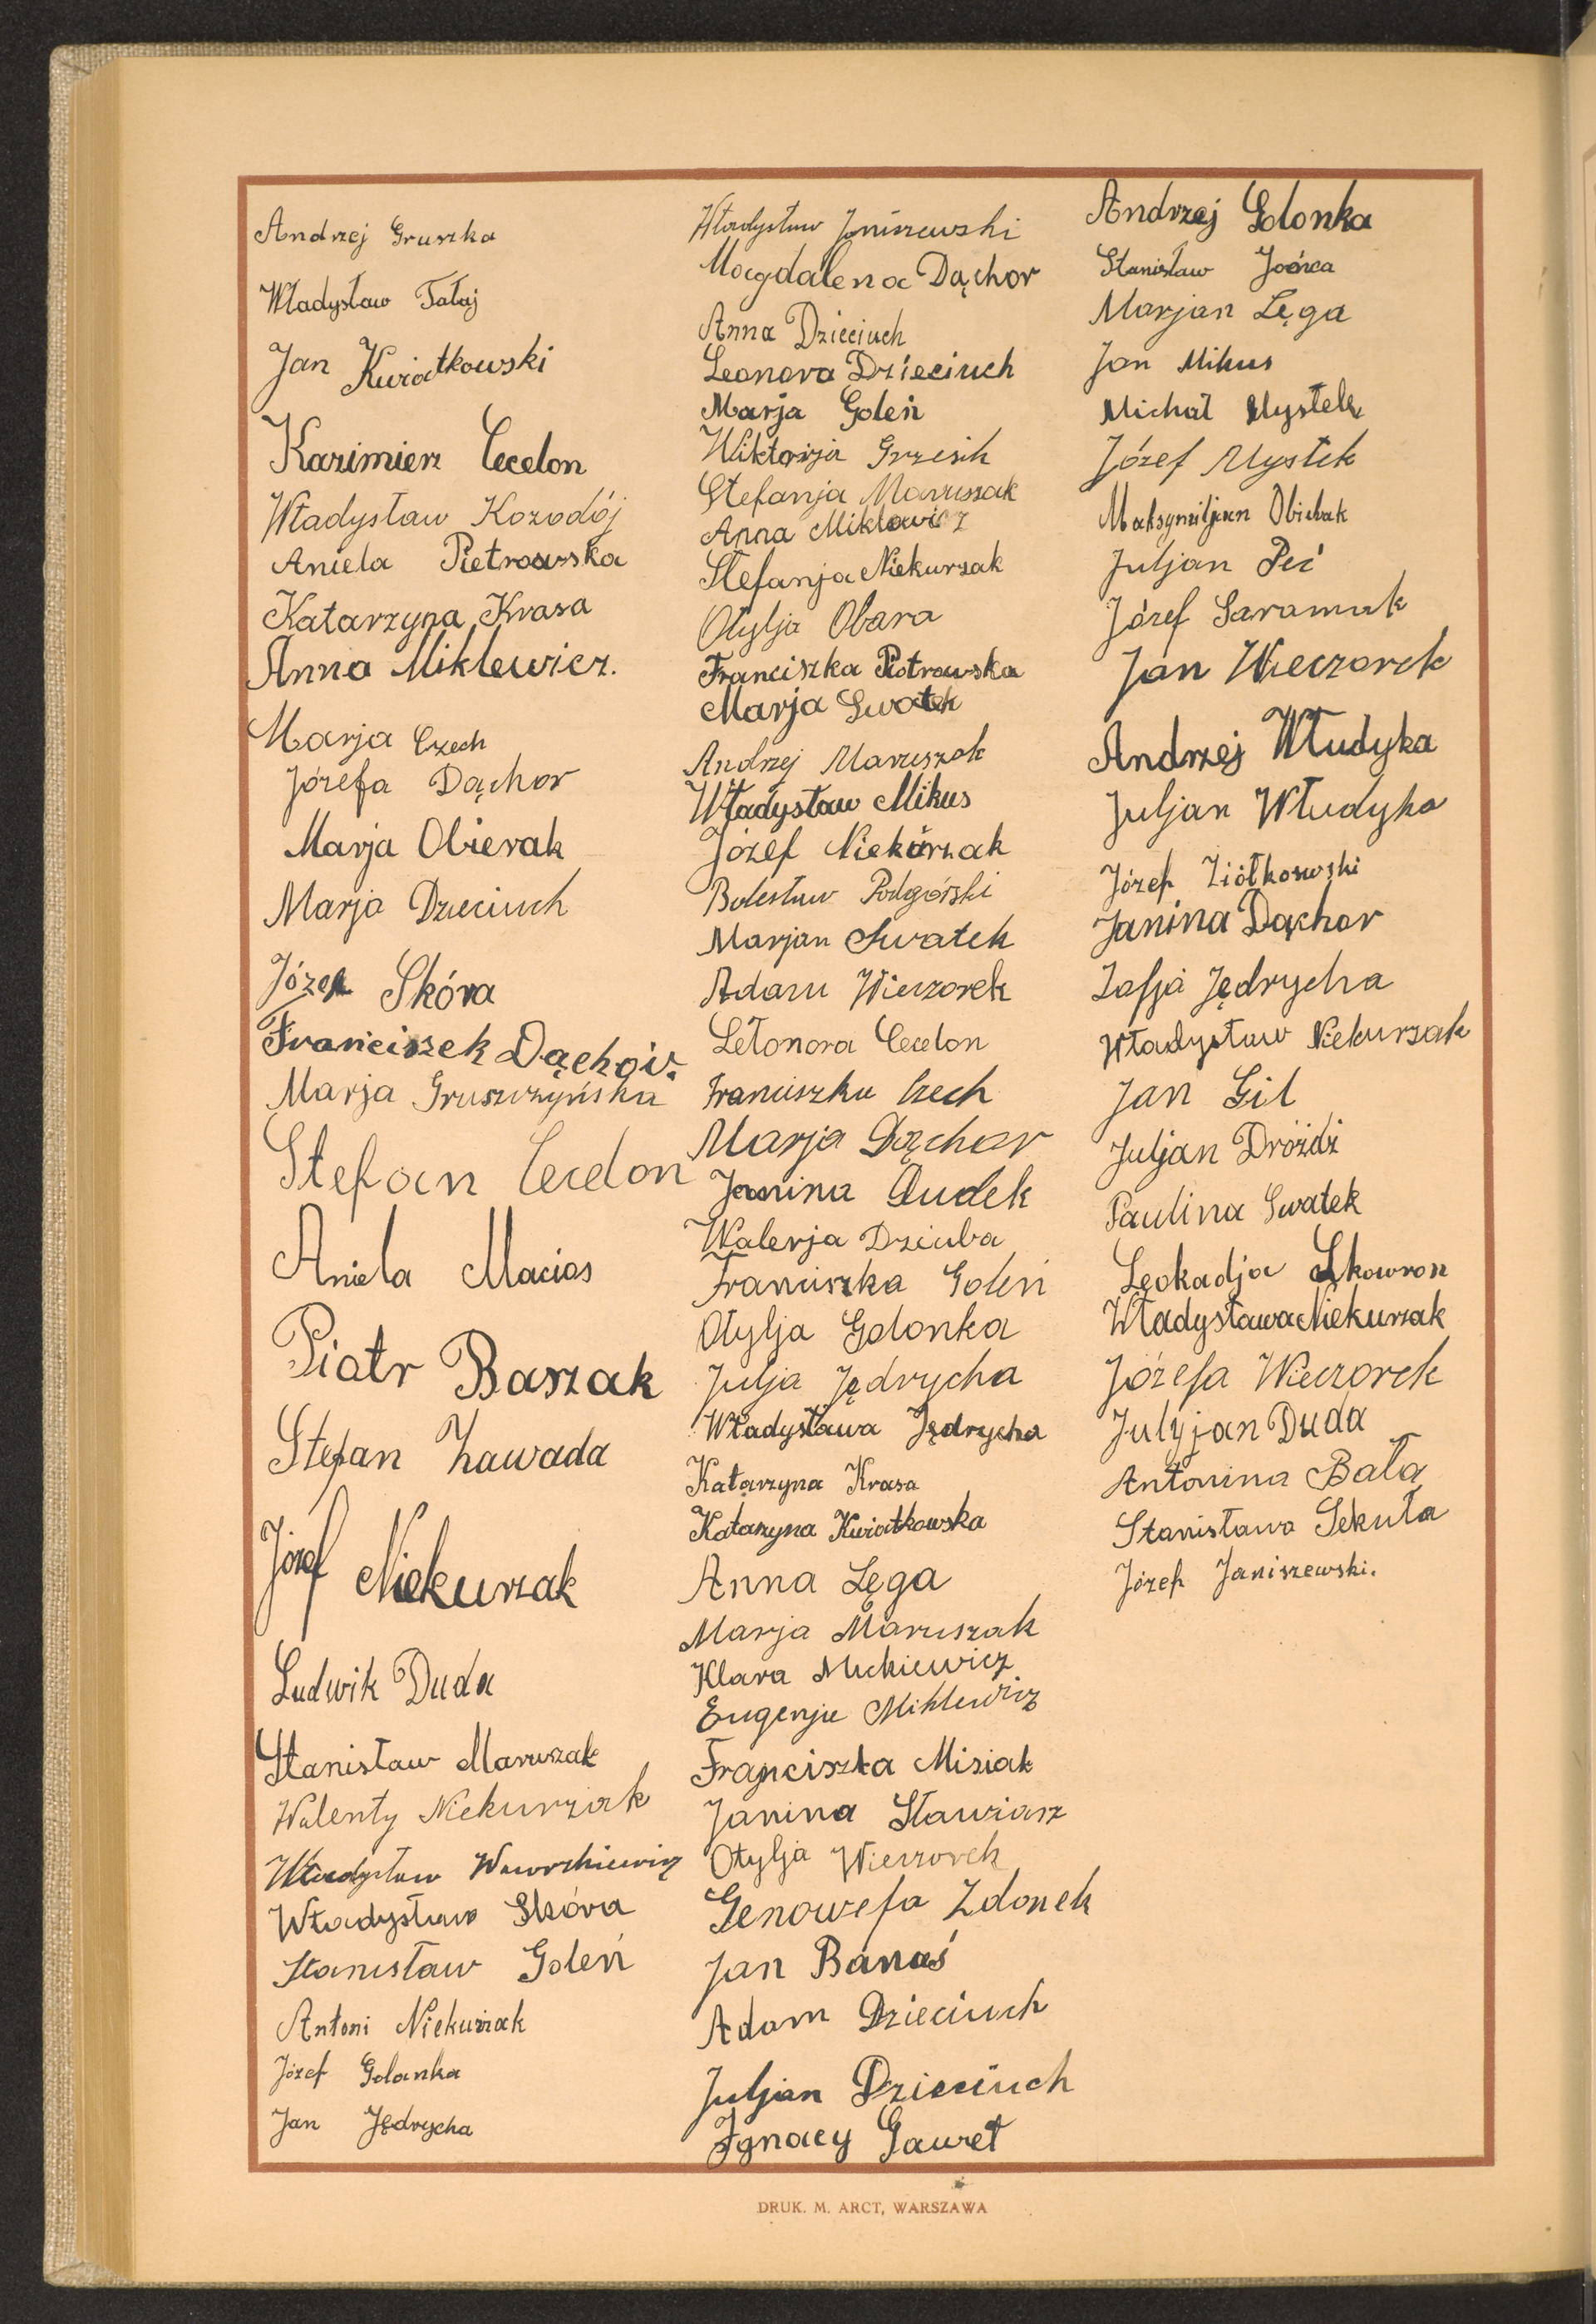 Andrzej Gruszka
Władysław Tałaj
Jan Kwiatkowski
Kazimierz Cecelon
Władysław Kozodój
Aniela Pietrowska
Katarzyna Krasa
Anna Miklewicz.
Marja Czech
Józefa Dąchor
Marja Obierak
Marja Dzieciuch
Józef Skóra
Franciszek Dąchór.
Marja Gruszczyńska
Stefan Cecelon
Aniela Macios
Piotr Baszak
Stefan Zawada
Józef Niekurzak
Ludwik Duda
Stanisław Maruszak
Walenty Niekurzak
Władysław Wawrzkiewicz
Władysław Skóra
Stanisław Goleń
Antoni Niekurzak
Józef Golonka
Jan Jędrycha
Władysław Janiszewski
Magdalena Dąchor
Anna Dzieciuch
Leonora Dzieciuch
Marja Goleń
Wiktorja Grzesik
Stefanja Maruszak
Anna Miklewicz
Stefanja Niekurzak
Otylja Obara
Franciszka Piotrowska
Marja Swatek
Andrzej Maruszak
Władysław Mikus
Józef Niekórzak
Bolesław Podgórski
Marjan Swatek
Adam Wieczorek
Leonora Cecelon
Franciszka Czech
Marja Dąchor
Janina Dudek
Walerja Dziuba
Franciszka Goleń
Otylja Golonka
Julja Jędrycha
Władysława Jędrycha
Katarzyna Krasa
Katarzyna Kwiatkowska
Anna Lęga
Marja Maruszak
Klara Mickiewicz
Eugenja Miklewicz
Franciszka Misiak
Janina Sławiarz
Otylja Wieczorek
Genowefa Zdonek
Jan Banaś
Adam Dzieciuch
Juljan Dzieciuch
Ignacy Gaweł
Andrzej Golonka
Stanisław Jońca
Marjan Lęga
Jan Mikus
Michał Mystek
Józef Mystek
Maksymiljan Obierak
Juljan Peć
Józef Saramak
Jan Wieczorek
Andrzej Włudyka
Juljan Włudyka
Józef Ziółkowski
Janina Dąchor
Zofja Jędrycha
Władysław Niekurzak
Jan Gil
Juljan Dróżdż
Paulina Swatek
Leokadja Skowron
Władysława Niekurzak
Józefa Wieczorek
Julyjan Duda
Antonina Bałą
Stanisława Sekuła
Józef Janiszewski.
DRUK. M. ARCT, WARSZAWA